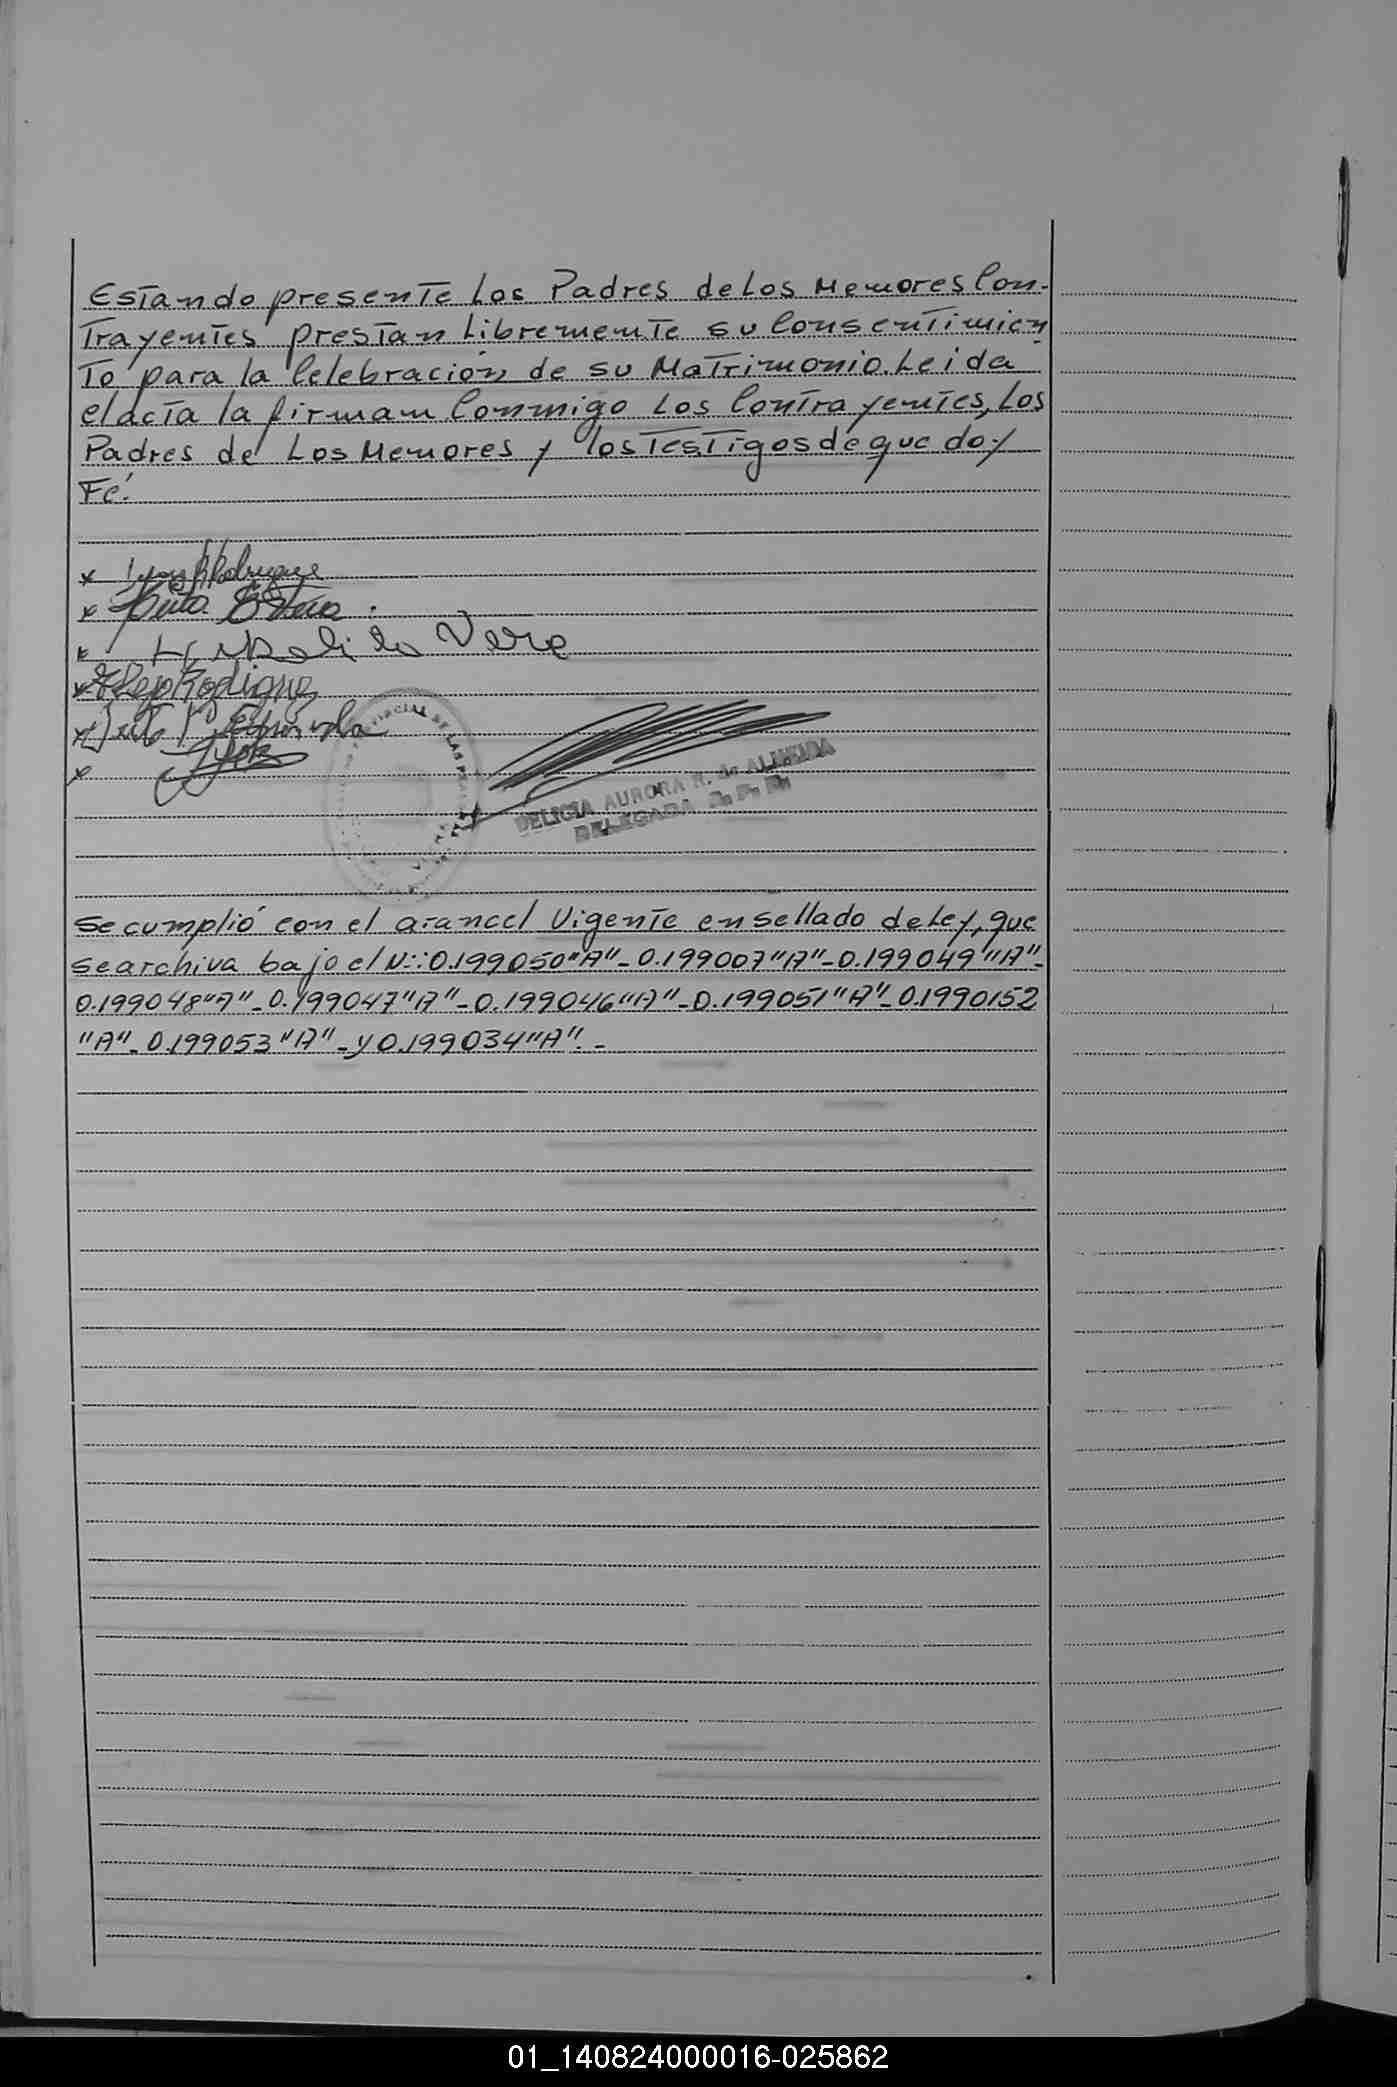 Estando presente Los Padres de Los Menores Con-
Trayentes prestan Libremente su Consentimien
To para la Celebración de su Matrimonio. Leida
el acta la firman Conmigo Los Contrayentes, Los
Padres de Los Menores y los Testigos de que doy
Fé.
x Rodrigue
x
x Vera
x Rodriguez
x
x
PROVINCIAL DE LAS P
DELICIA AURORA R. de ALMEIDA
DELEGADA R. P. P.
Se cumplió con el arancel Vigente en sellado de Ley, que
se archiva bajo el N:: 0.199050"A"- 0.199007"A"- 0.199049"A"-
0.199048"A"- 0.199047"A"- 0.199046"A"- 0.199051"A"- 0.1990152
"A"- 0.199053"A"- y 0.199034"A".-
01_140824000016-025862